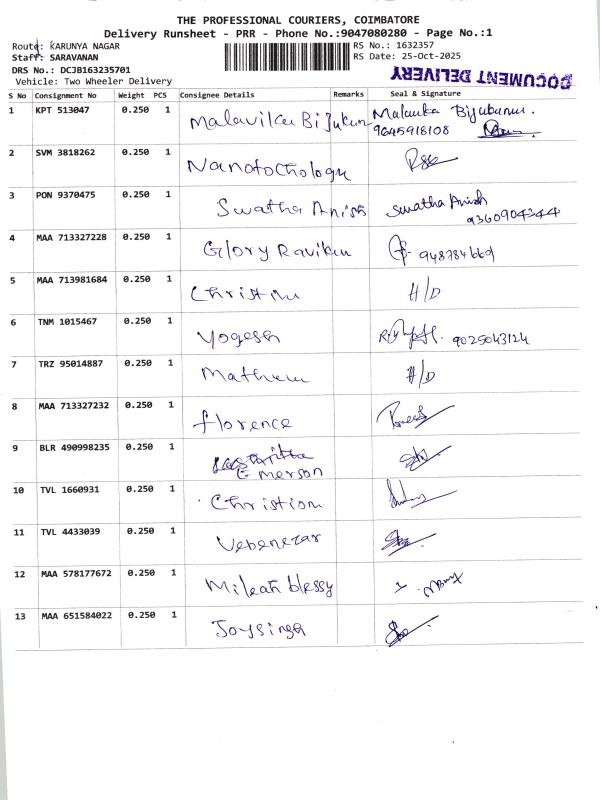 THE PROFESSIONAL COURIERS, COIMBATORE
Delivery Runsheet - PRR - Phone No.:9047080280 - Page No.:1
Route: KARUNYA NAGAR
RS No.: 1632357
Staff: SARAVANAN
RS Date: 25-Oct-2025
DRS No.: DCJB163235701
Vehicle: Two Wheeler Delivery
DOCUMENT DELIVERY
S No Consignment No Weight PCS Consignee Details Remarks Seal & Signature
1 KPT 513047 0.250 1 Malavika Bijukum Malavika Bijukumar.
9645918108
2 SVM 3818262 0.250 1 Nanotochology
3 PON 9370475 0.250 1 Swatha Anish Swatha Anish
9360904344
4 MAA 713327228 0.250 1 Glory Ravikum 948784669
5 MAA 713981684 0.250 1 Christin H/D
6 TNM 1015467 0.250 1 Yogesh 9025043124
7 TRZ 95014887 0.250 1 Mathew H/D
8 MAA 713327232 0.250 1 florence
9 BLR 490998235 0.250 1
Emerson
10 TVL 1660931 0.250 1 Christion
11 TVL 4433039 0.250 1 Vebenezar
12 MAA 578177672 0.250 1 Mileah blessy
13 MAA 651584022 0.250 1 Joysinga